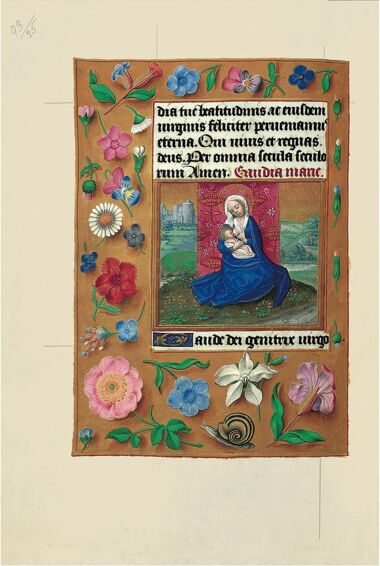 93/95
dia tue beatitudinis ac eiusdem
uirginis feliciter perueniamus
eterna. Qui uiuis et regnas.
deus. Per omnia secula seculo
rum Amen. Gaudia marie.
aude dei genitrix uirgo